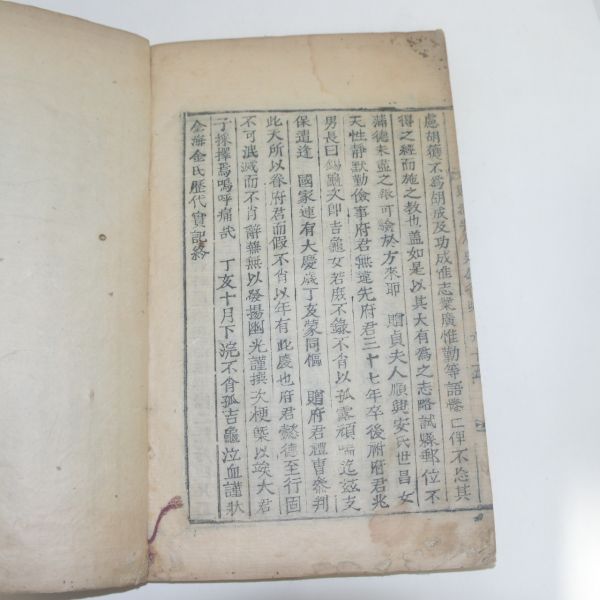 慮胡德不爲胡成及功成惟志業廣惟勤等語眷仁俾不忝其
得之經而施之教也盖如是以其大有爲之志略試縣郵位不
滿德未盡之報可諭於方來耶　贈貞夫人順興安氏世昌女
天性靜默勤儉事府君無違先府君三十七年卒後祔府君兆
男長曰錫龜次卽吉龜女若庶不錄不肖以孤露頑喘迄玆支
保遭逢　國家連有大慶歲丁亥蒙同樞　贈府君禮曺叅判
此天所以眷府君而假不肖以年有此慶也府君懿德至行固
不可泯滅而不肖辭蕪無以發揚幽光謹撰次梗槩以竢大君
子採擇焉嗚呼痛哉　丁亥十月下浣不肖孤吉龜泣血謹狀
金海金氏歷代實記終